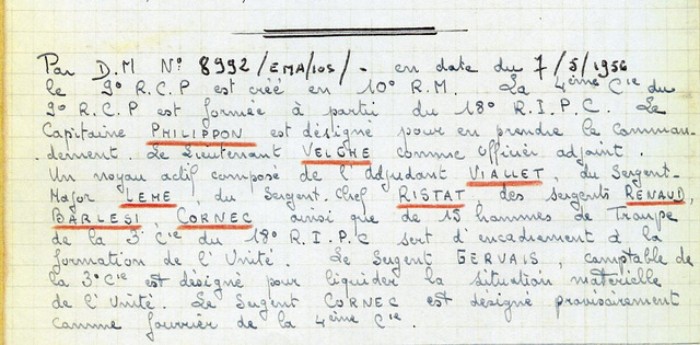 Par D.M N° 8992/EMA/1OS/- en date du 7/5/1956
le 9° R.C.P est créé en 10° R.M. La 4ème Cie du
9° R.C.P est formée à partir du 18° R.I.P.C. Le
Capitaine PHILIPPON est désigné pour en prendre le comman-
dement. Le Lieutenant VELGHE comme Officier adjoint.
Un noyau actif composé de l'Adjudant VIALLET, du Sergent-
Major LEME, du Sergent-Chef RISTAT des sergents RENAUD,
BARLESI, CORNEC ainsi que de 15 hommes de Troupe
de la 3° Cie du 18° R.I.P.C sert d'encadrement à la
formation de l'Unité. Le Sergent GERVAIS, comptable de
la 3° Cie est désigné pour liquider la situation matérielle
de l'Unité. Le Sergent CORNEC est désigné provisoirement
comme fourrier de la 4ème Cie.